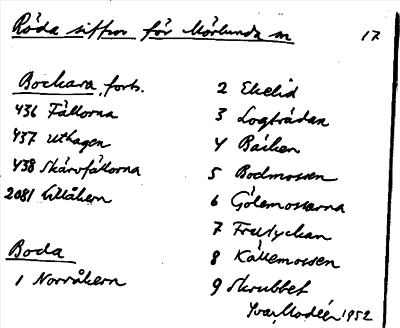 Röda siffror för Mörlunda sn
17
Bockara, forts.
436 Fållorna
437 Uthagen
438 Skärvfållorna
2081 Lillåkern
Boda
1 Norråkern
2 Ekelid
3 Logträdan
4 Backen
5 Bodmossen
6 Gölemossarna
7 Frulyckan
8 Källemossen
9 Skrubbet
Ivar Modéer 1952